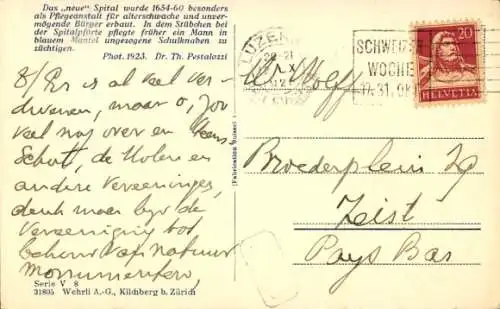 Das „neue" Spital wurde 1654-60 besonders
als Pflegeanstalt für altersschwache und unver-
mögende Bürger erbaut. In dem Stübchen bei
der Spitalpforte pflegte früher ein Mann in
blauem Mantel ungezogene Schulknaben zu
züchtigen.
Phot. 1923. Dr. Th. Pestalozzi
8/ Er is al veel ver-
dwenen, maar o, zoo
veel nog over en
Schutt, de Molens en
andere Vereeniginge,
denk maar bijv de
Vereeniging tot
behoud van natuur
Monumenten,
Serie V 8
31805 Wehrli A.-G., Kilchberg b. Zürich
(Fabrication Suisse)
LUZERN
SCHWEIZER
WOCHE
17.-31. OKT
20
HELVETIA
Wolff
Broederplein 29
Zeist
Pays Bas